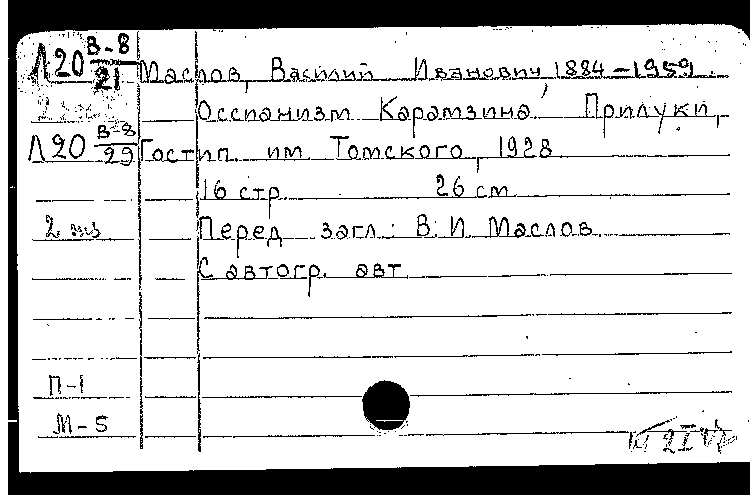 Л20 В-8/21 Маслов, Василий Иванович, 1884-1959.
Оссианизм Карамзина. Прилуки,
Л20 В-8/29 Гостип. им. Томского, 1928
16 стр. 26 см
2 экз Перед загл.: В. И. Маслов.
С автогр. авт.
П-1
М-5